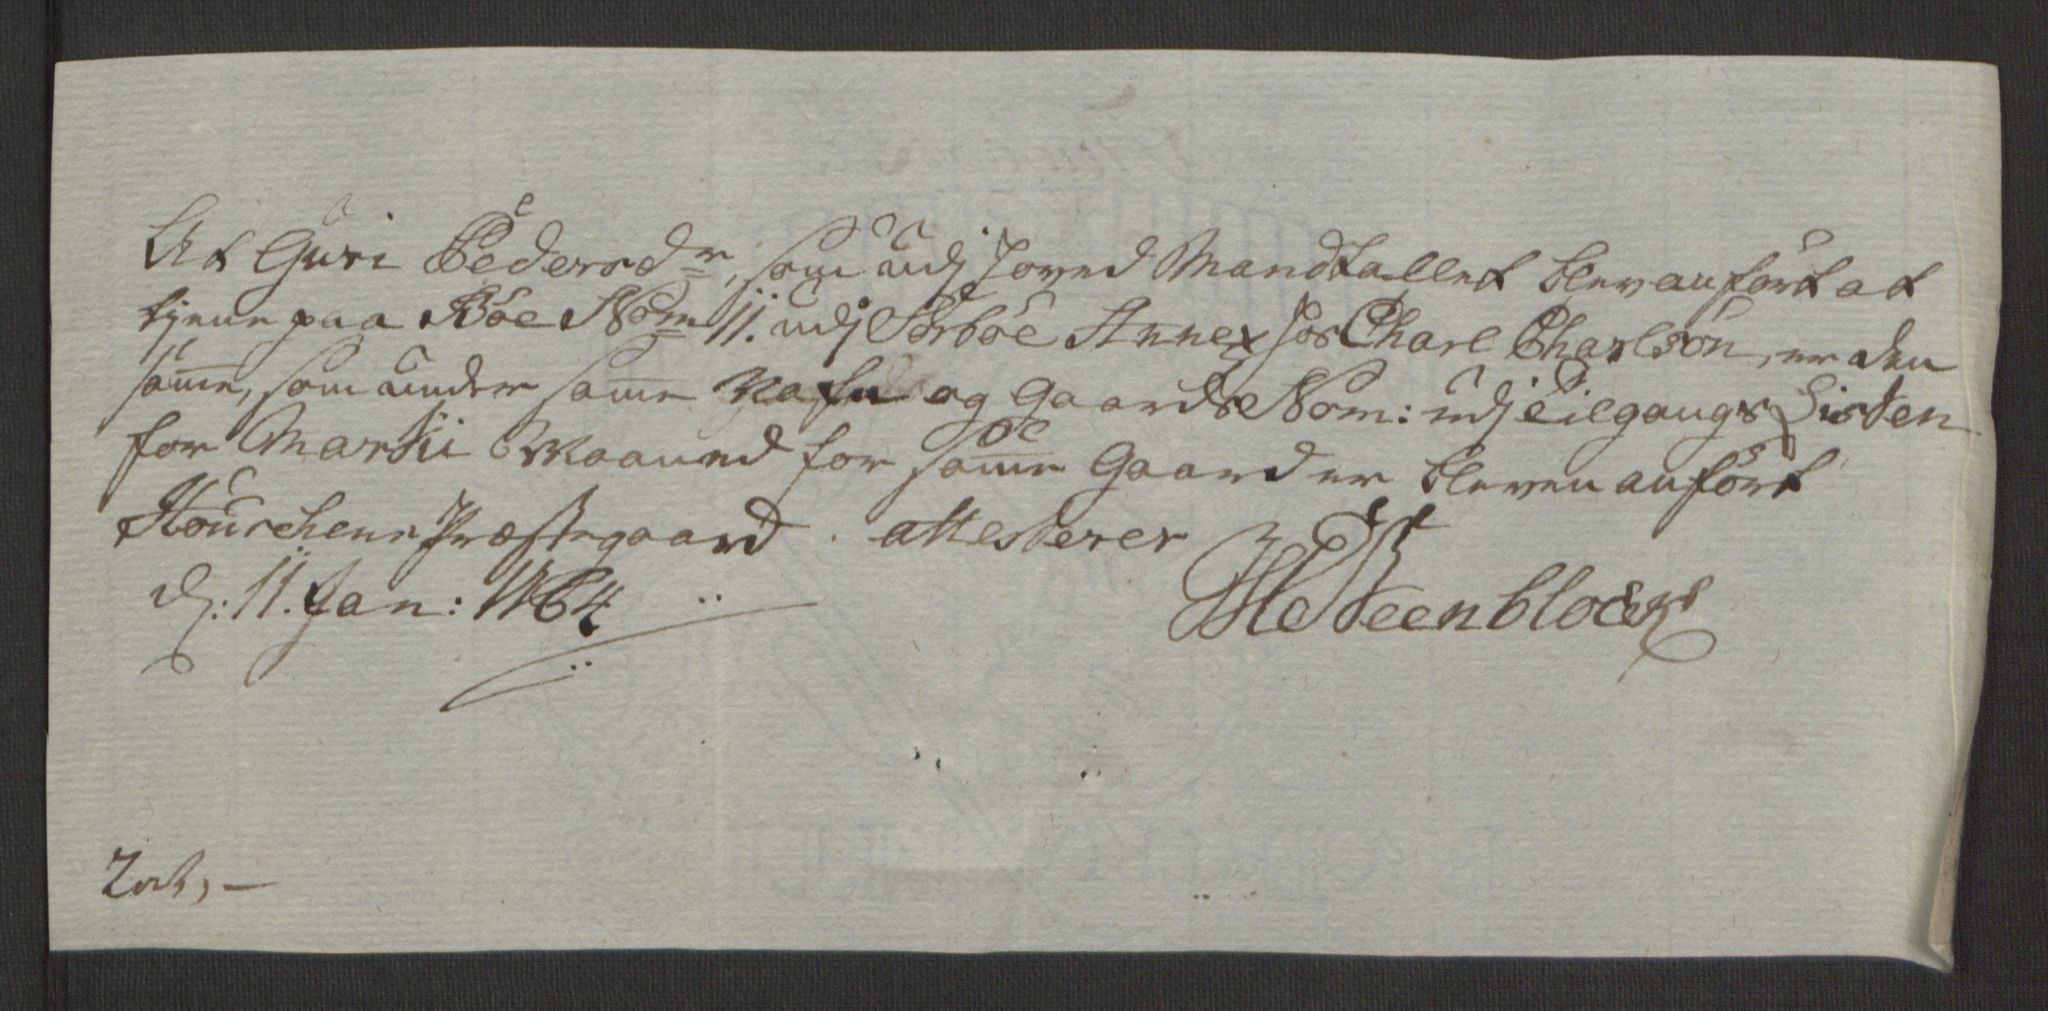 At Guri Pedersdr, som udj Hoved Mandtallet blev anført at
tjene paa Bøe Nom 11. udj Sørbøe Annex hos Charl Charlsøn, er den
samme, som under samme Nafn og Gaards Nom: udj Tilgangs Listen
for Martii Maaned for samme Gaard er bleven anført
Præstegaard. attesterer
d: 11. Jan: 1764
HSteenblock
2 rd, -